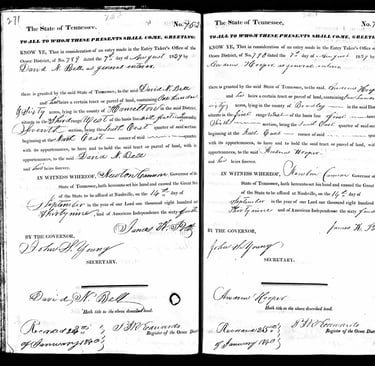 271
The State of Tennessee, No.
TO ALL TO WHOM THESE PRESENTS SHALL COME, GREETING:
KNOW YE, That in consideration of an entry made in the Entry Taker's Office of the
Ocoee District, of No. 789 dated the 7th day of August 1839 by
David N. Bell as general enterer
there is granted by the said State of Tennessee, unto the said David N. Bell
and his heirs a certain tract or parcel of land, containing one hundred
& sixty acres, lying in the county of Hamilton in the said District,
situate in the third range West of the basis line
Seventh section being the South East quarter of said section
beginning at the North East corner
with its appurtenances, to have and to hold the said tract or parcel of land, with its
appurtenances, to the said David N. Bell
and his heirs forever.
IN WITNESS WHEREOF, Newton Cannon Governor of the
State of Tennessee, hath hereunto set his hand and caused the Great Seal of
the State to be affixed at Nashville, on the 14th day of
September in the year of our Lord one thousand eight hundred and
thirty nine and of American Independence the sixty fourth
BY THE GOVERNOR,
John S. Young
SECRETARY.
David N. Bell
Hath title to the above described land.
of January 1840
Register of the Ocoee District
The State of Tennessee, No.
TO ALL TO WHOM THESE PRESENTS SHALL COME, GREETING
KNOW YE, That in consideration of an entry made in the Entry Taker's Office
Ocoee District, of No. 790 dated the 7th day of August 1839
Andrew Hooper as general enterer
there is granted by the said State of Tennessee, unto the said Andrew
and his heirs a certain tract or parcel of land, containing
sixty acres, lying in the county of Bradley in the said
situate in the first range West of the basis
section being the East quarter of said
beginning at the North East corner
with its appurtenances, to have and to hold the said tract or parcel of land,
appurtenances, to the said Andrew Hooper
and his heirs forever.
IN WITNESS WHEREOF, Newton Cannon Governor
State of Tennessee, hath hereunto set his hand and caused the Great
the State to be affixed at Nashville, on the 14th day
September in the year of our Lord one thousand eight hundred
thirty nine and of American Independence the sixty
James K. P
BY THE GOVERNOR,
John S. Young
SECRETARY.
Andrew Hooper
Hath title to the above described land.
of January 1840
Register of the Ocoee